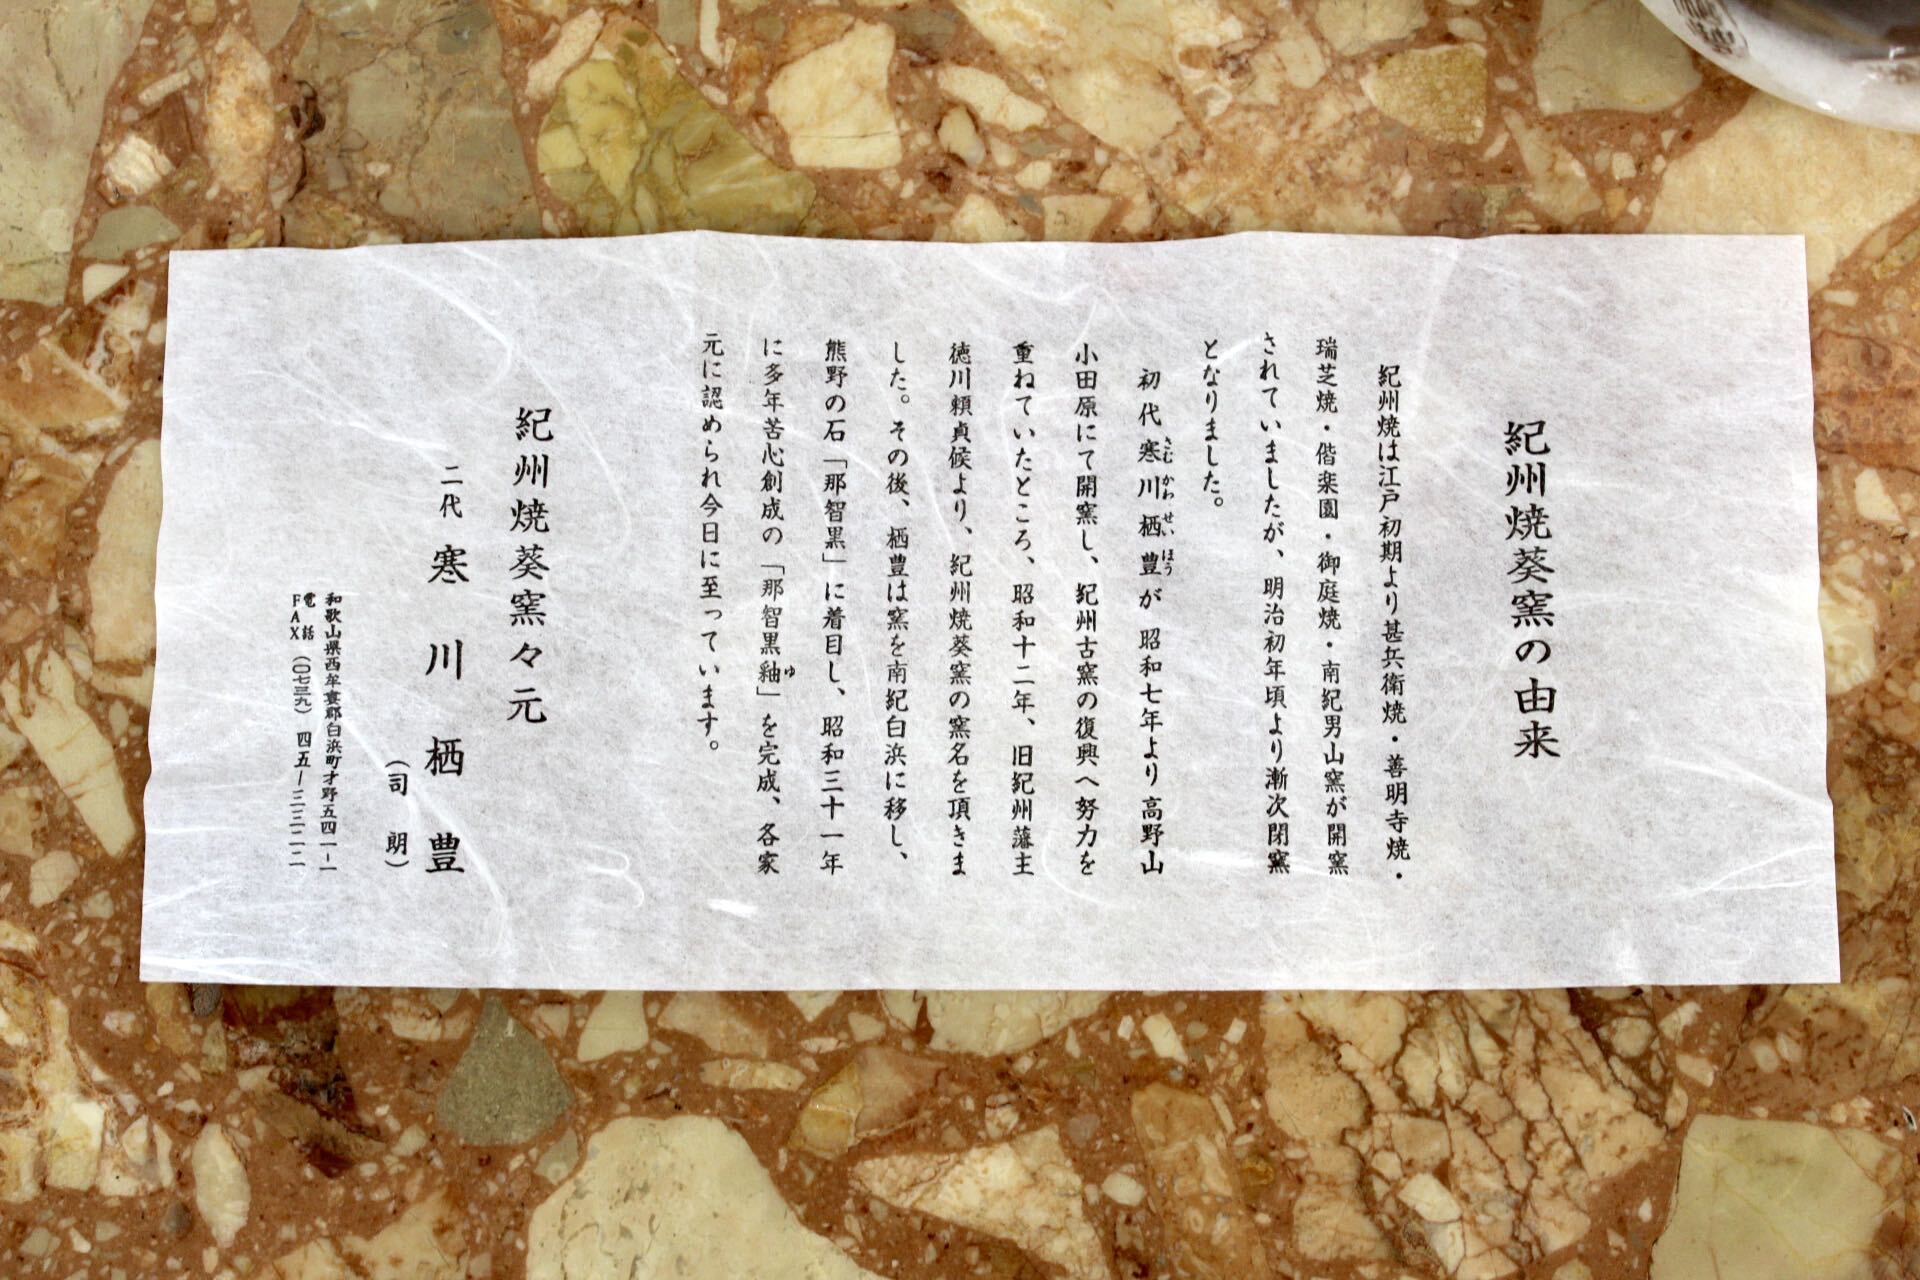 紀州焼葵窯の由来
紀州焼は江戸初期より甚兵衛焼・善明寺焼・
瑞芝焼・偕楽園・御庭焼・南紀男山窯が開窯
されていましたが、明治初年頃より漸次閉窯
となりました。
初代寒川栖豊が昭和七年より高野山
さむかわせいほう
小田原にて開窯し、紀州古窯の復興へ努力を
重ねていたところ、昭和十二年、旧紀州藩主
徳川頼貞候より、紀州焼葵窯の窯名を頂きま
した。その後、栖豊は窯を南紀白浜に移し、
熊野の石「那智黒」に着目し、昭和三十一年
に多年苦心創成の「那智黒釉」を完成、各家
ゆ
元に認められ今日に至っています。
紀州焼葵窯々元
二代 寒川栖豊
(司朗)
和歌山県西牟婁郡白浜町才野五四一ー一
電話
FAX (〇七三九) 四五ー三三二二